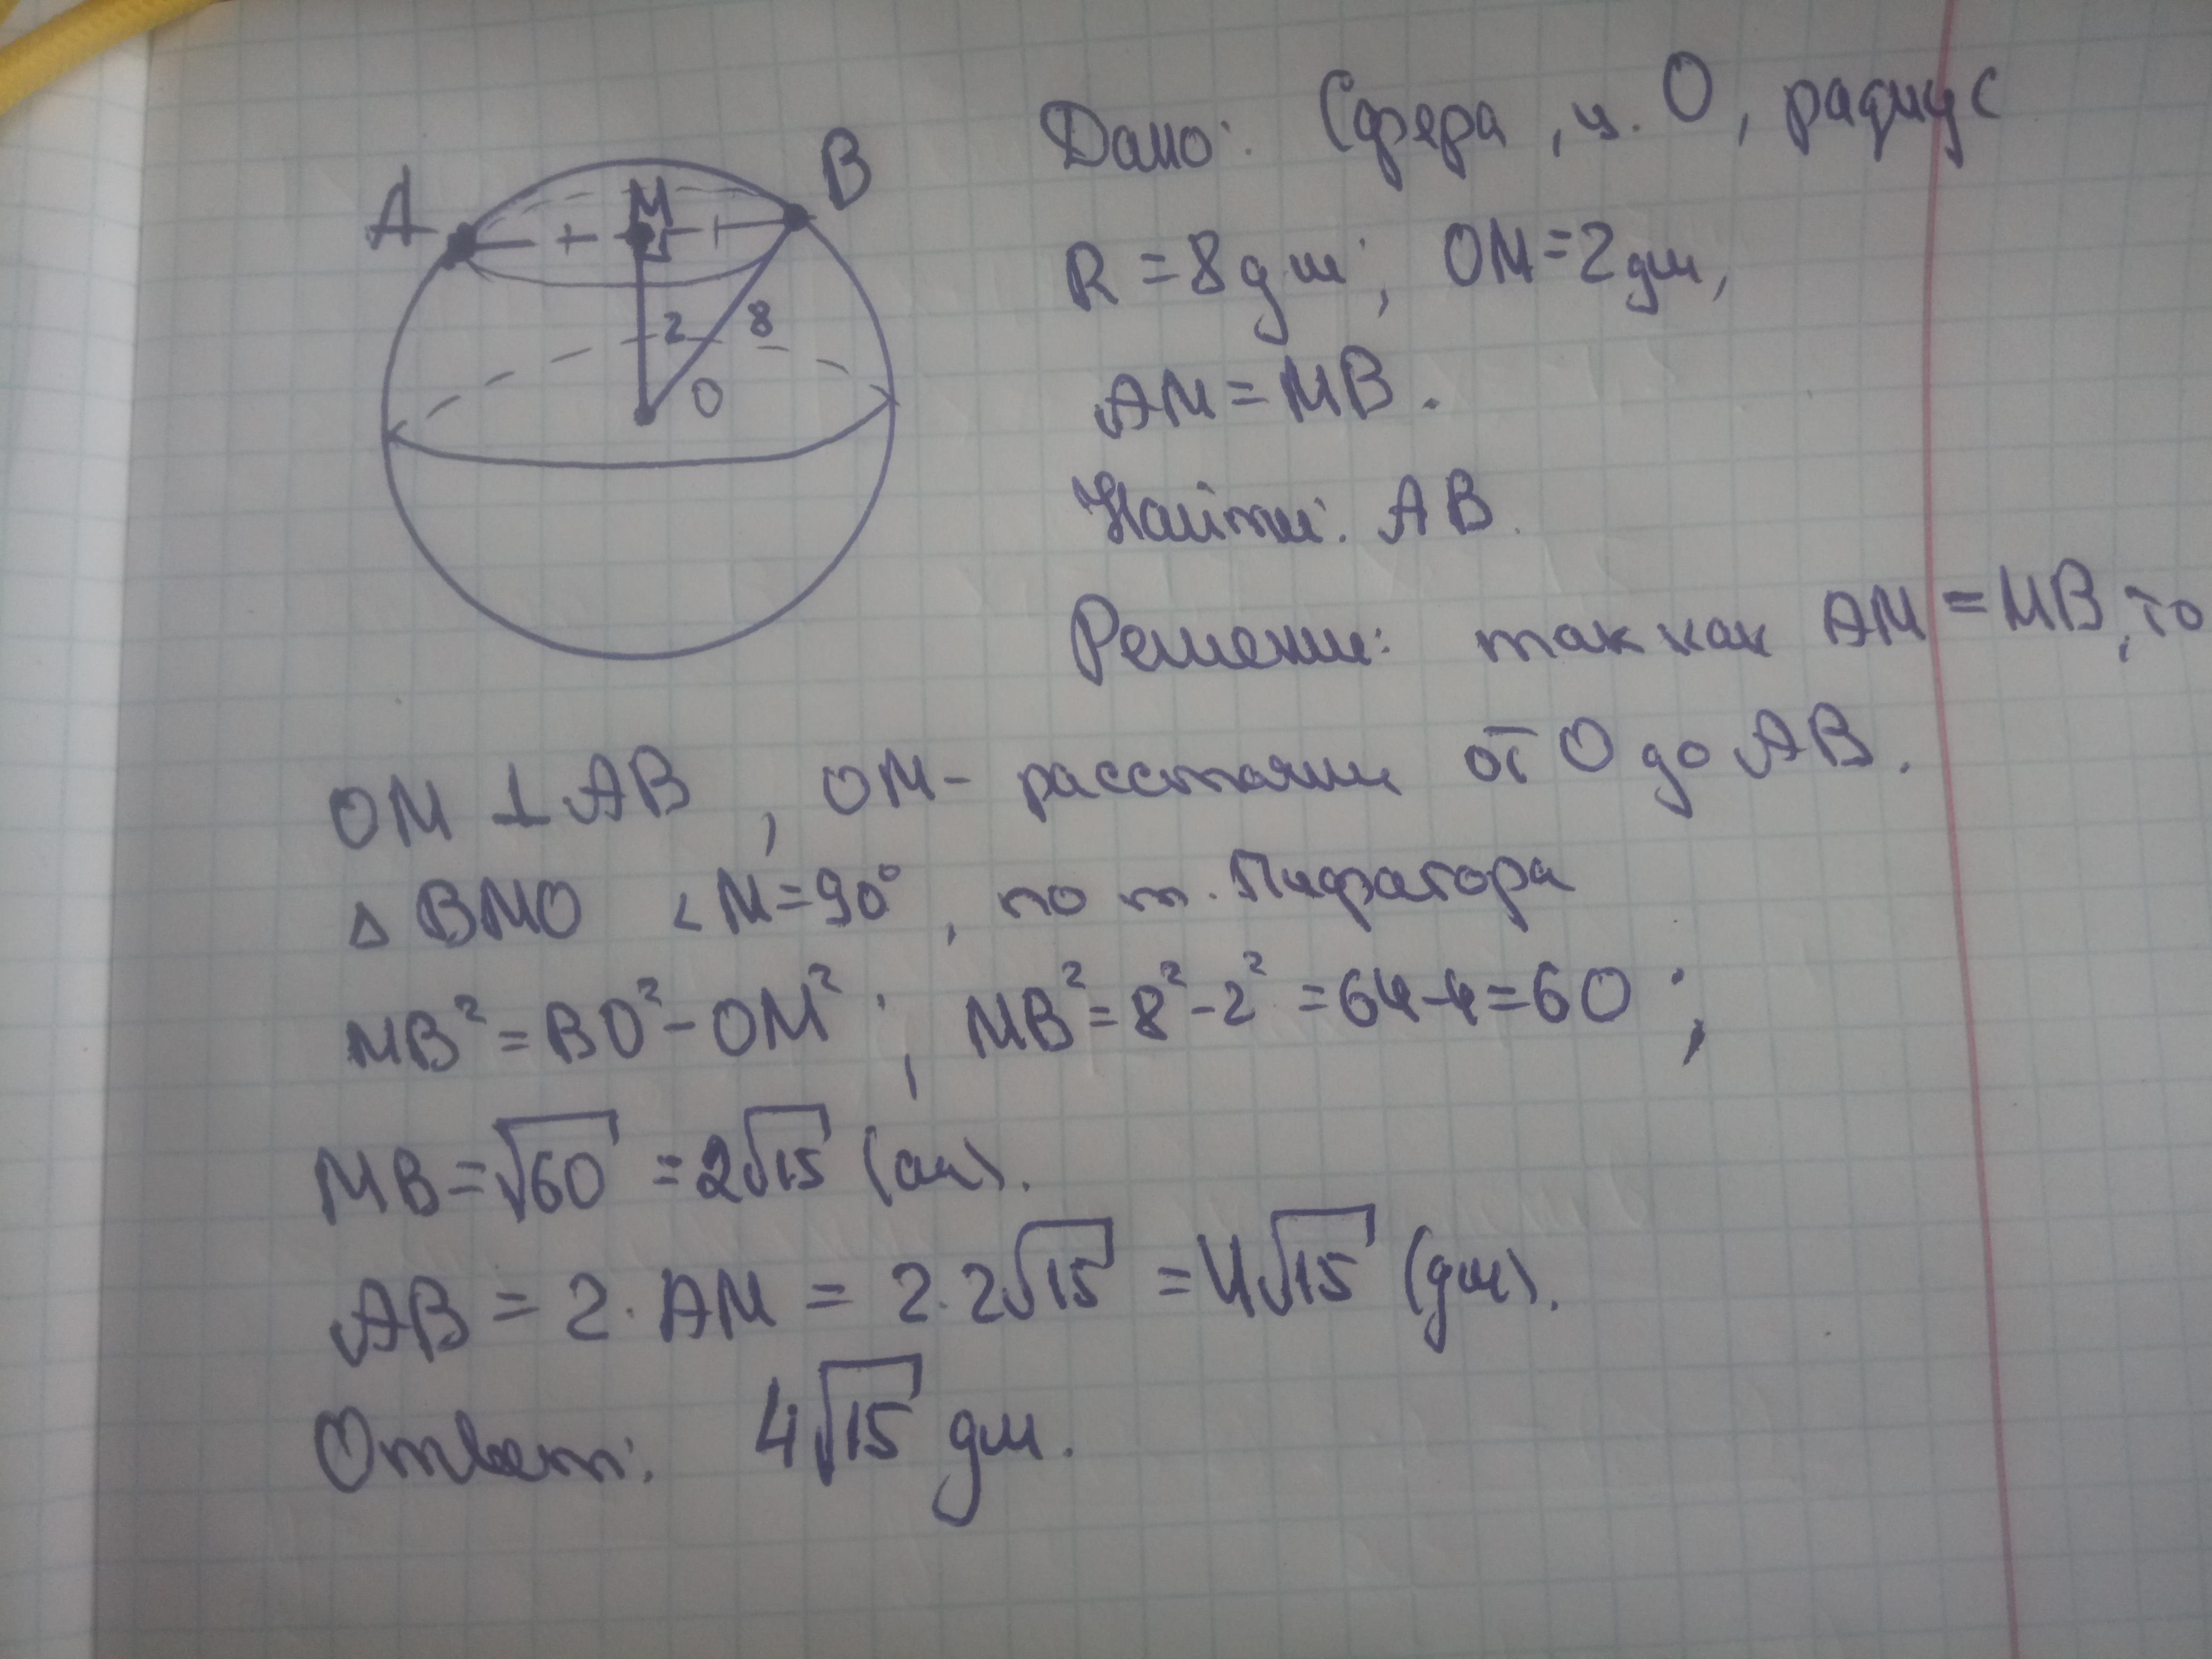 A
M
B
2
8
O
Дано: Сфера, ц. О, радиус
R = 8 дм; OM = 2 дм,
AM = MB.
Найти: AB.
Решение: так как AM = MB, то
OM ⊥ AB, OM - расстояние от O до AB.
△ BMO ∠M = 90°, по т. Пифагора
MB² = BO² - OM²; MB² = 8² - 2² = 64 - 4 = 60;
MB = √60 = 2√15 (дм).
AB = 2 · AM = 2 · 2√15 = 4√15 (дм).
Ответ: 4√15 дм.